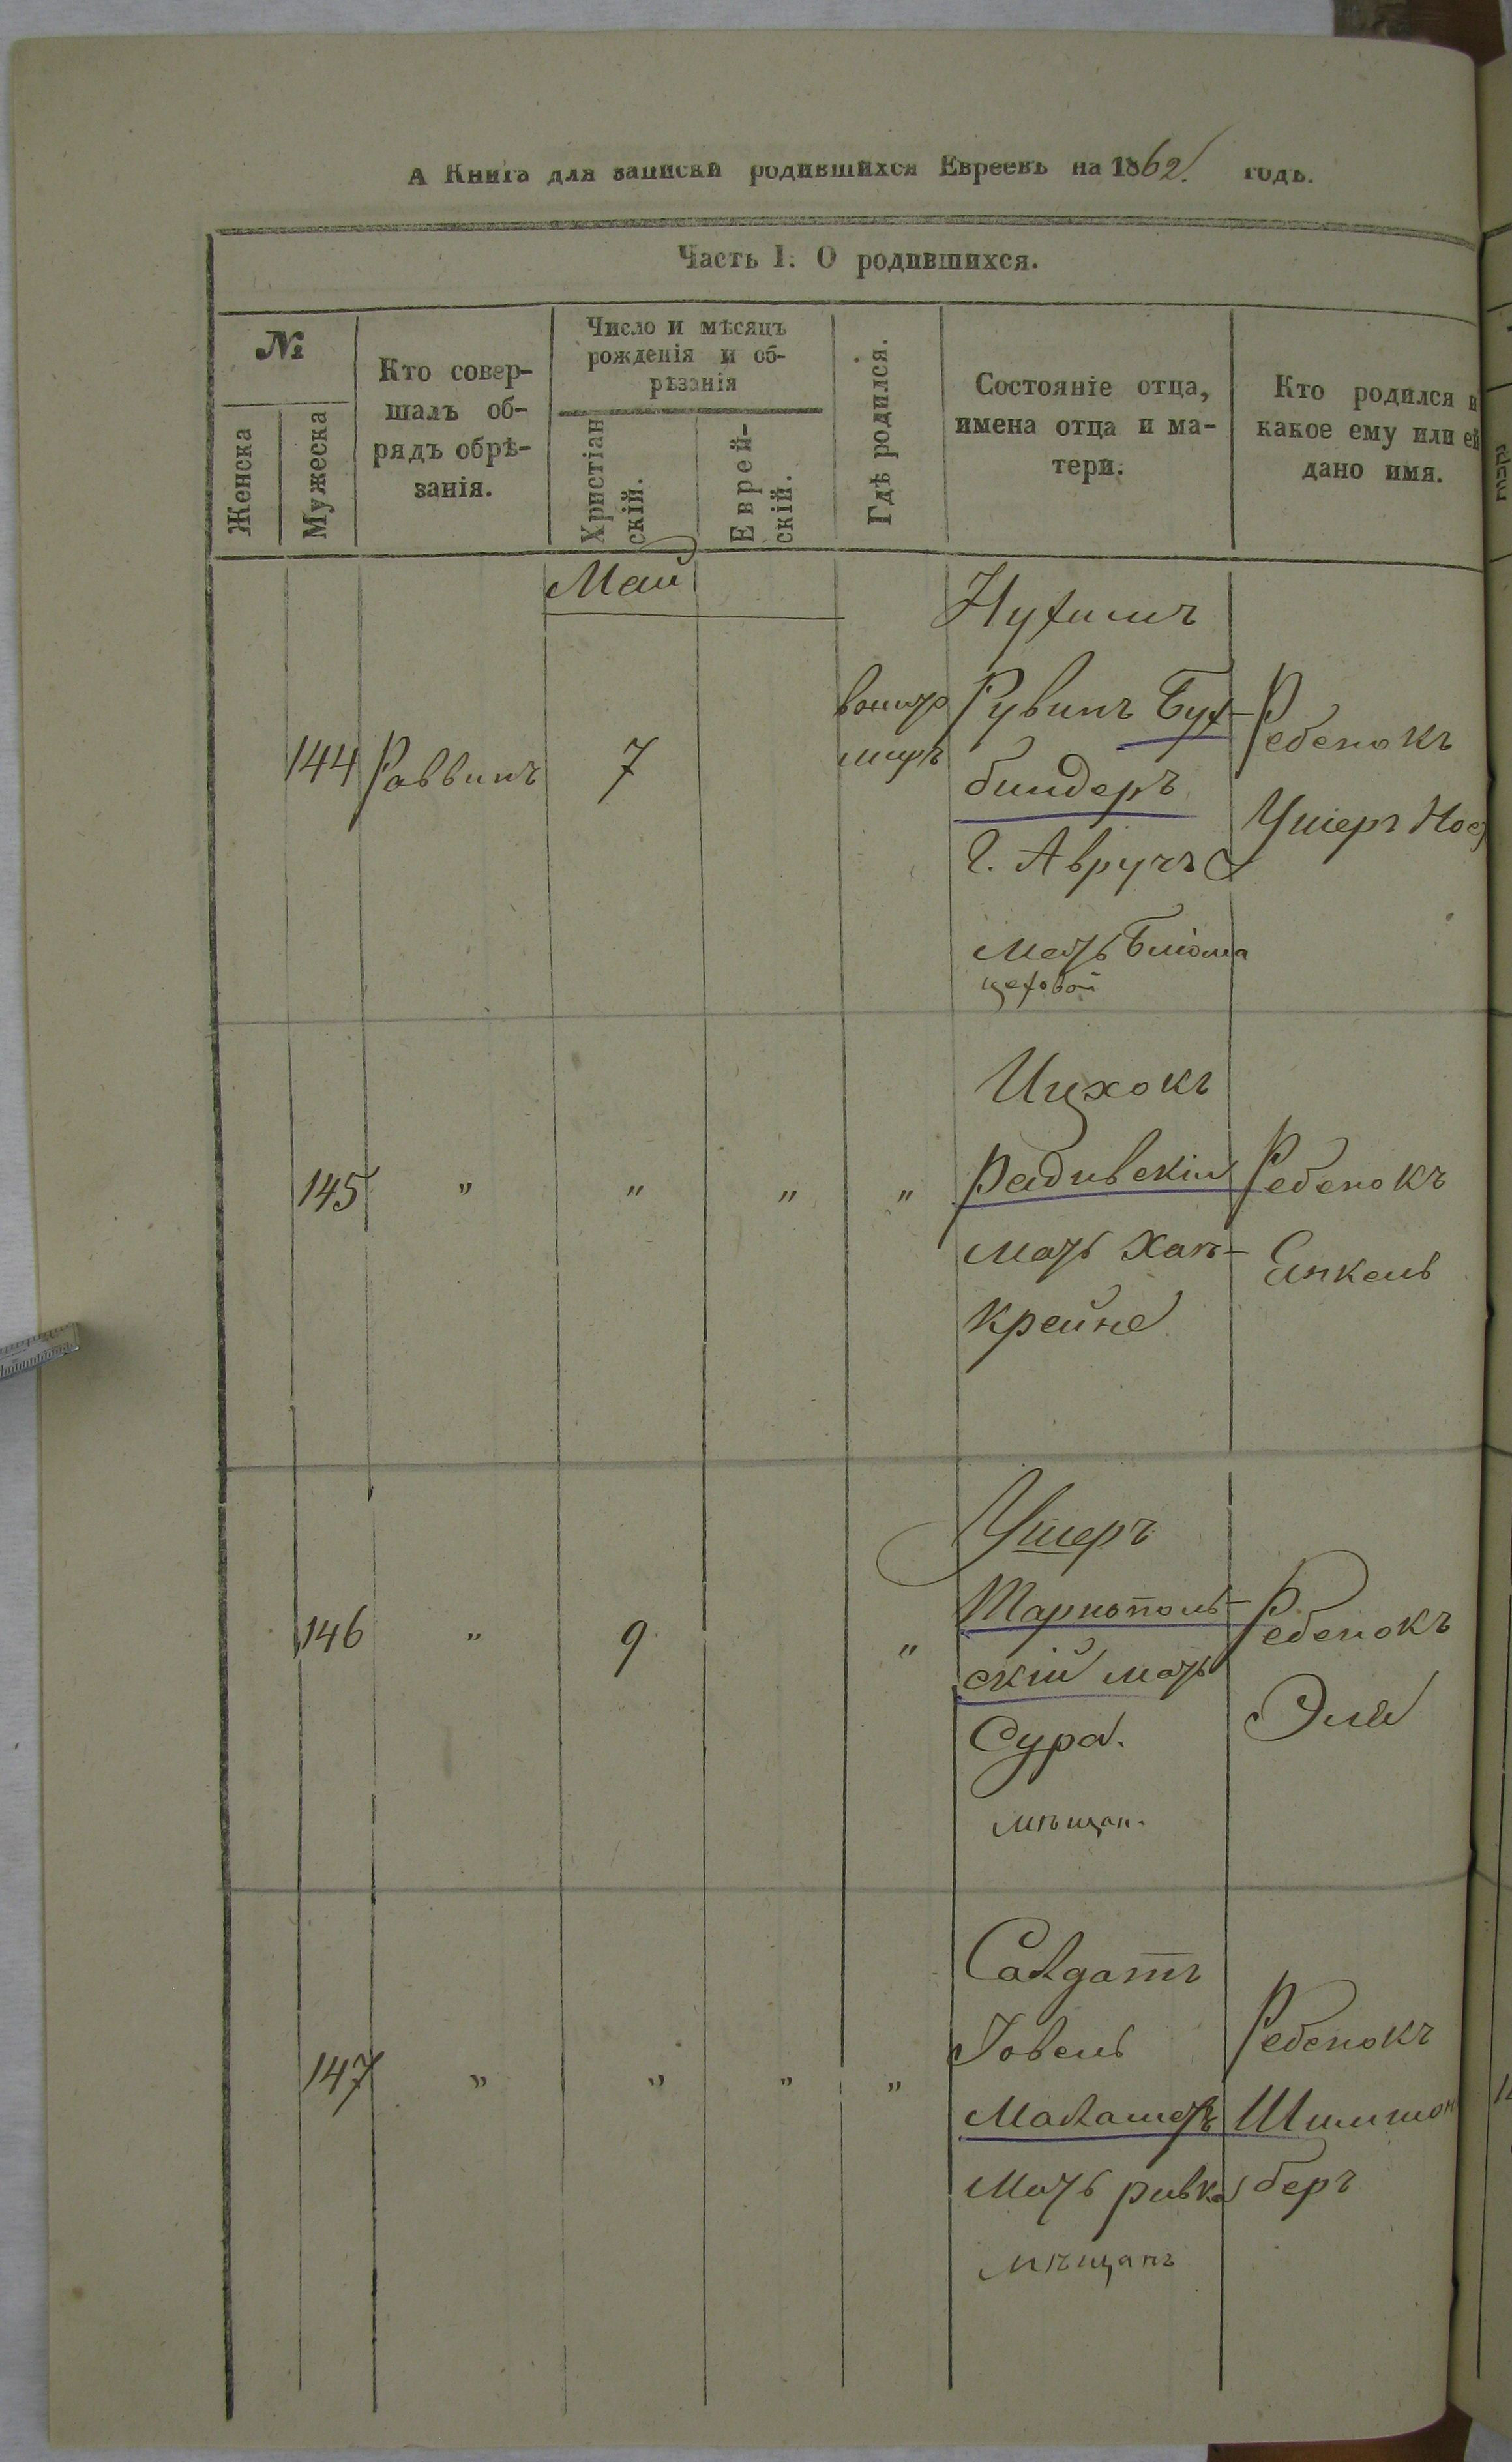 А Книга для записки родившихся Евреевъ на 1862. годъ.
Часть I. О родившихся.
№
Женска
Мужеска
Кто совер-
шалъ об-
рядъ обрѣ-
занія.
Число и мѣсяцъ
рожденія и об-
рѣзанія
Христіан
скій.
Еврей-
скій.
Гдѣ родился.
Состояніе отца,
имена отца и ма-
тери.
Кто родился и
какое ему или ей
дано имя.
Май
144
Раввинъ
7
Нухимъ
Рувинъ Бух-
биндеръ
г. Авручъ
мать
цеховой
Ребенокъ
Ушеръ
145
"
"
"
"
Ицхокъ
Радивскій
мать Хан-
крейне
Ребенокъ
Янкель
146
"
9
"
Ушеръ
Тарнополь-
скій мать
Сура.
мѣщан.
Ребенокъ
Эля
147
"
"
"
"
Салдатъ
Іовель
мать ривка
мѣщанъ
Ребенокъ
Шимшон
беръ